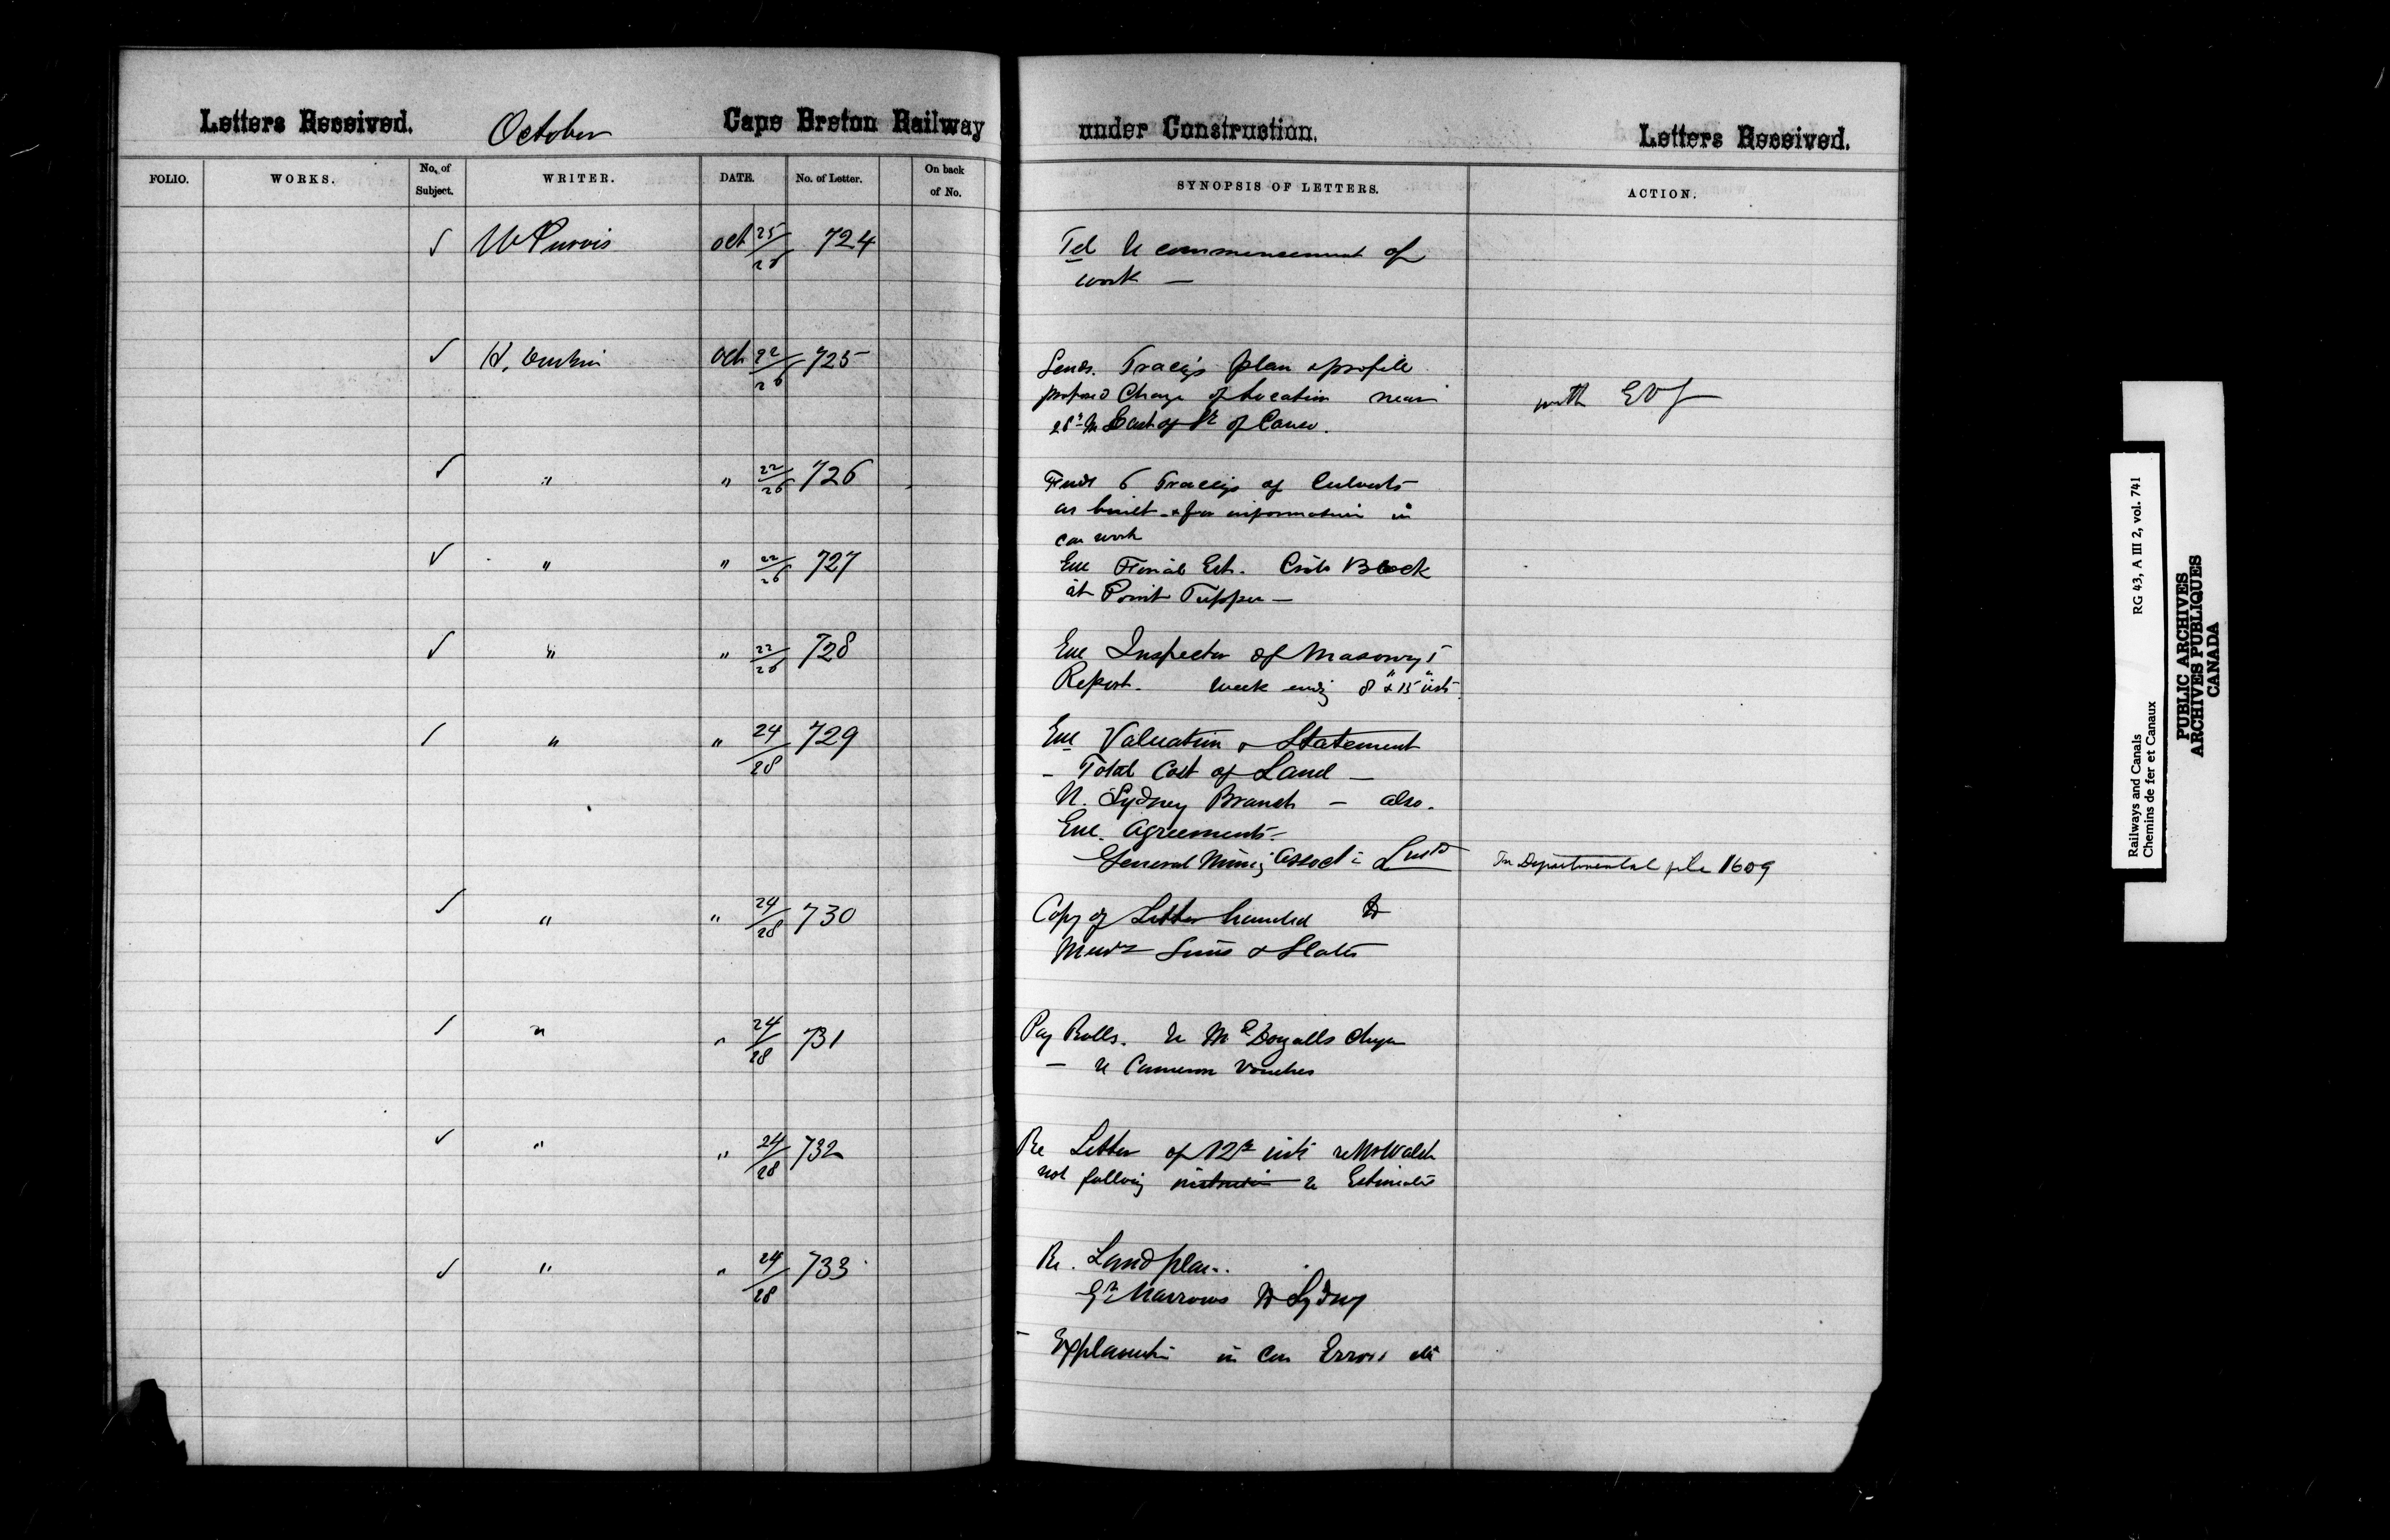 Letters Received. October Cape Breton Railway under Construction. Letters Received.
FOLIO. WORKS. No. of Subject. WRITER. DATE. No. of Letter. On back of No. SYNOPSIS OF LETTERS. ACTION.
✓ W Purvis Oct 25/26 724 Tel re commencement of
work —
✓ H. Oct 22/26 725 Sends Tracigs plan & profile
proposed Change of Location near with EVJ
28th M East of St of Canso.
✓ " " 22/26 726 6 Tracigs of Culverts
as built & for information in
con work
✓ " " 22/26 727 Enc Final Est. Crib Block
at Point Tupper —
✓ " " 22/26 728 Enc Inspector of Masonry's
Report. Week endg 8" & 15" inst.
✓ " " 24/28 729 Enc Valuation & Statement
— Total Cost of Land —
N. Sydney Branch — also.
Enc. Agreements —
General Mining Assoctn Limtd In Departmental file 1609
✓ " " 24/28 730 Copy of Letter handed to
Messrs Sims & Slater
✓ " " 24/28 731 Pay Rolls. re McDougalls
— re Cameron Vouchers
✓ " " 24/28 732 Re Letter of 12th inst re Mr Walsh
not follwig instruction re Estimates
✓ " " 24/28 733 Re. Land plan.
Gd Narrows to Sydney
— Explanation in con Errors etc
Railways and Canals RG 43, A III 2, vol. 741
Chemins de fer et Canaux
PUBLIC ARCHIVES
ARCHIVES PUBLIQUES
CANADA